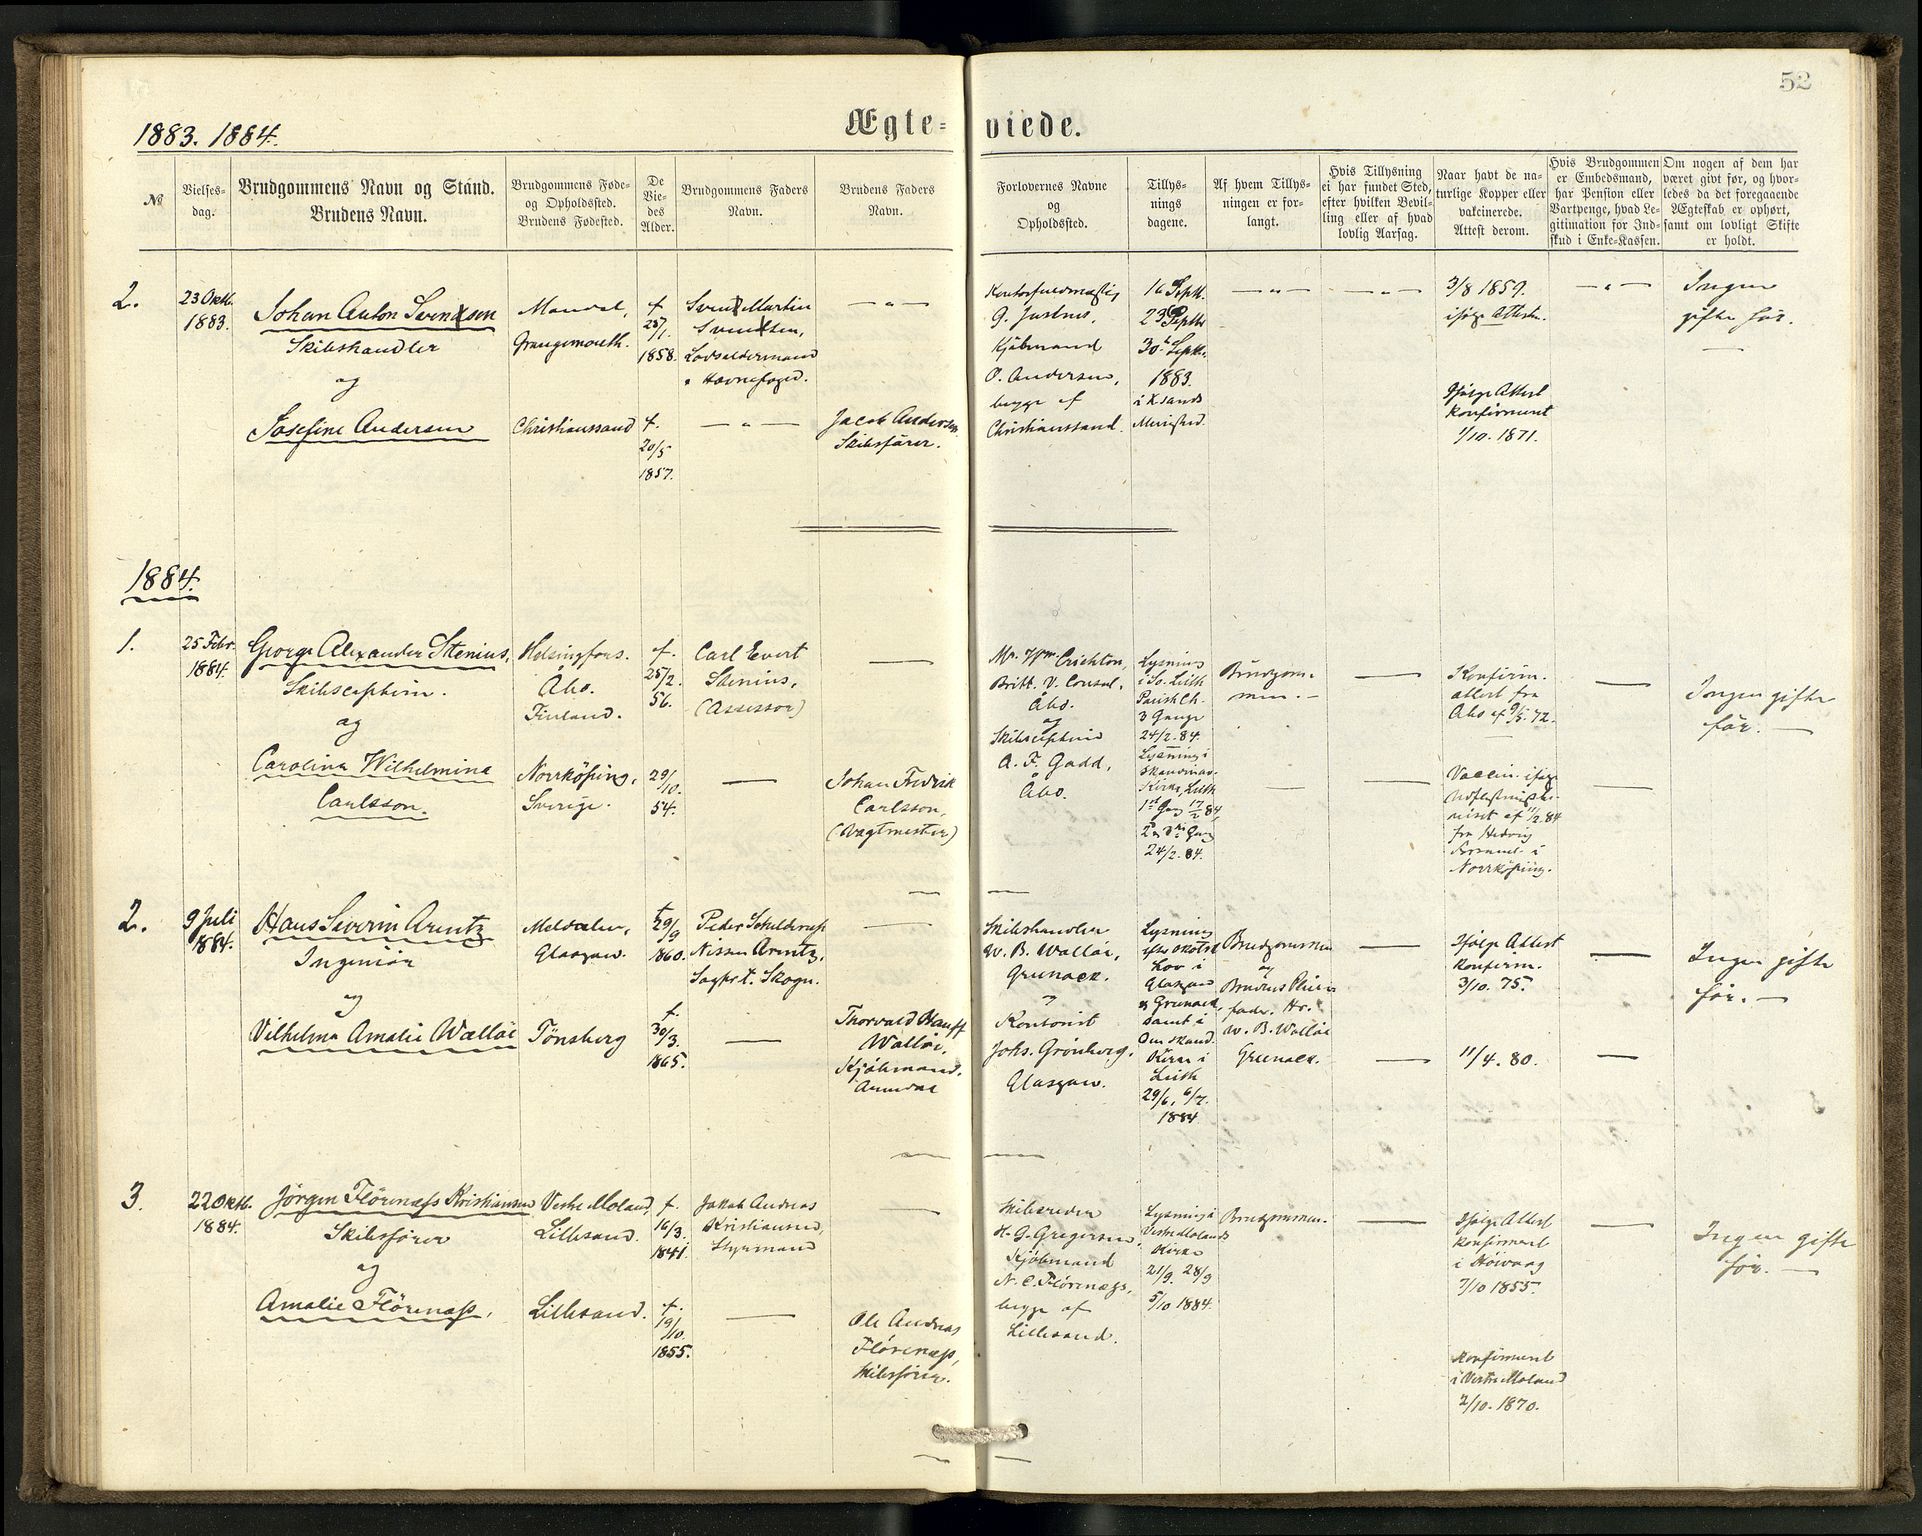 52
1883. 1884.
Ægte-viede.
№
Vielses-
dag.
Brudgommens Navn og Stand.
Brudens Navn.
Brudgommens Føde-
og Opholdssted.
Brudens Fødested.
De
Vie-
des
Alder.
Brudgommens Faders
Navn.
Brudens Faders
Navn.
Forlovernes Navne
og
Opholdssted.
Tillys-
nings
dagene.
Af hvem Tillys-
ningen er for-
langt.
Hvis Tillysning
ei har fundet Sted,
efter hvilken Bevil-
ling eller af hvad
lovlig Aarsag.
Naar havt de na-
turlige Kopper eller
vakcinerede.
Attest derom.
Hvis Brudgommen
er Embedsmand,
har Pension eller
Vartpenge, hvad Le-
gitimation for Ind-
skud i Enke-Kassen.
Om nogen af dem har
været givt før, og hvor-
ledes da det foregaaende
Ægteskab er ophørt,
samt om lovligt Skifte
er holdt.
2.
23 Oktb.
1883.
Johan Anton Svendsen
Skibshandler
og
Josefine Andersen
Mandal,
Grangemouth.
Christianssand
f.
1858.
f.
20/5
1857.
Svend Martin
Svendsen,
Lodsoldermand
Havnefoged.
— „ —
— „ —
Jacob Andersen
Skibsfører.
G. Justnes,
Kjøbmand
O. Andersen,
begge af
Christianssand.
16 Septb.
23 Septbr
30te Septb.
1883.
i Ksands
Menighed.
— „ —
— „ —
3/8 1859.
ifølge Attest.
Ifølge Attest
konfirmeret
1/10. 1871.
— „ —
Ingen
gifte før.
—
1884.
1.
25 Febr.
1884.
George Alexander Stenius,
Skibscaptein.
og
Carolina Wilhelmina
Carlsson.
Helsingfors.
Åbo.
Finland.
Norrköping,
Sverige.
f.
25/2.
56.
29/10.
54.
Carl Evert
Stenius,
(Assessor)
—
—
Johan Fredrik
Carlsson,
(Vagtmester)
Mr. Wm. Crichton,
Britt. V. Consul,
Åbo.
og
Skibscaptein
A. F. Gadd,
Åbo.
Lysning
i So. Leith
Parish Ch.
3 Gange
24/2. 84.
Lysning i
Skandinav.
Kirke, Leith
1st Gang 17/2 84,
24/2. 84.
Brudgom-
men. —
—
—
—
Konfirm.
attest fra
Åbo af 9/5. 72.
Vaccin. ifølge
af 11/2. 84
fra Hedvig
i
Norrköping.
—
—
Ingen gifte
før. —
2.
9 Juli
1884.
Hans Severin Arentz
Ingeniør
og
Vilhelmna Amalie Walløe
Meldalen,
Glasgow.
Tönsberg
f.
29/9
1860.
f.
30/3.
1865.
Peder Schilderup
Nissen Arentz,
Sogpr. t. Skogn.
—
—
Thorvald Hauff
Walløe,
Kjøbmand.
Skibshandler
W. B. Walløe,
Greenock.
„
Kontorist
Johs. Grönberg,
Glasgow.
Lysning
efter skotsk
Lov i
Glasgow
& Greenock,
samt i
Den skand.
Kirke i
Leith
29/6, 6/7.
1884.
Brudgommen
og
Brudens Pleie-
fader Hr.
W. B. Walløe
Greenock.
—
—
Ifølge Attest
konfirm.
3/10. 75.
11/4. 80.
—
—
Ingen gifte
før. —
3.
22 Oktb.
1884.
Jörgen Flörenæs Kristiansen
Skibsfører
og
Amalie Flörenæs,
Vestre Moland,
Lillesand.
Lillesand.
f.
16/3.
1841.
f.
19/10.
1855.
Jakob Andreas
Kristiansen,
Styrmand
—
—
Ole Andreas
Flörenæs,
Skibsfører.
Skibsreder
H. G. Gregersen,
Kjöbmand
N. C. Flörenæs,
begge af
Lillesand.
Lysning i
Vestre Molands
Kirke
21/9. 28/9
5/10 1884.
Brudgommen.
—
Ifølge Attest
konfirmeret
i Höivaag
7/10 1855.
konfirmeret
i Vestre Moland
2/10. 1870.
—
Ingen gifte
før. —